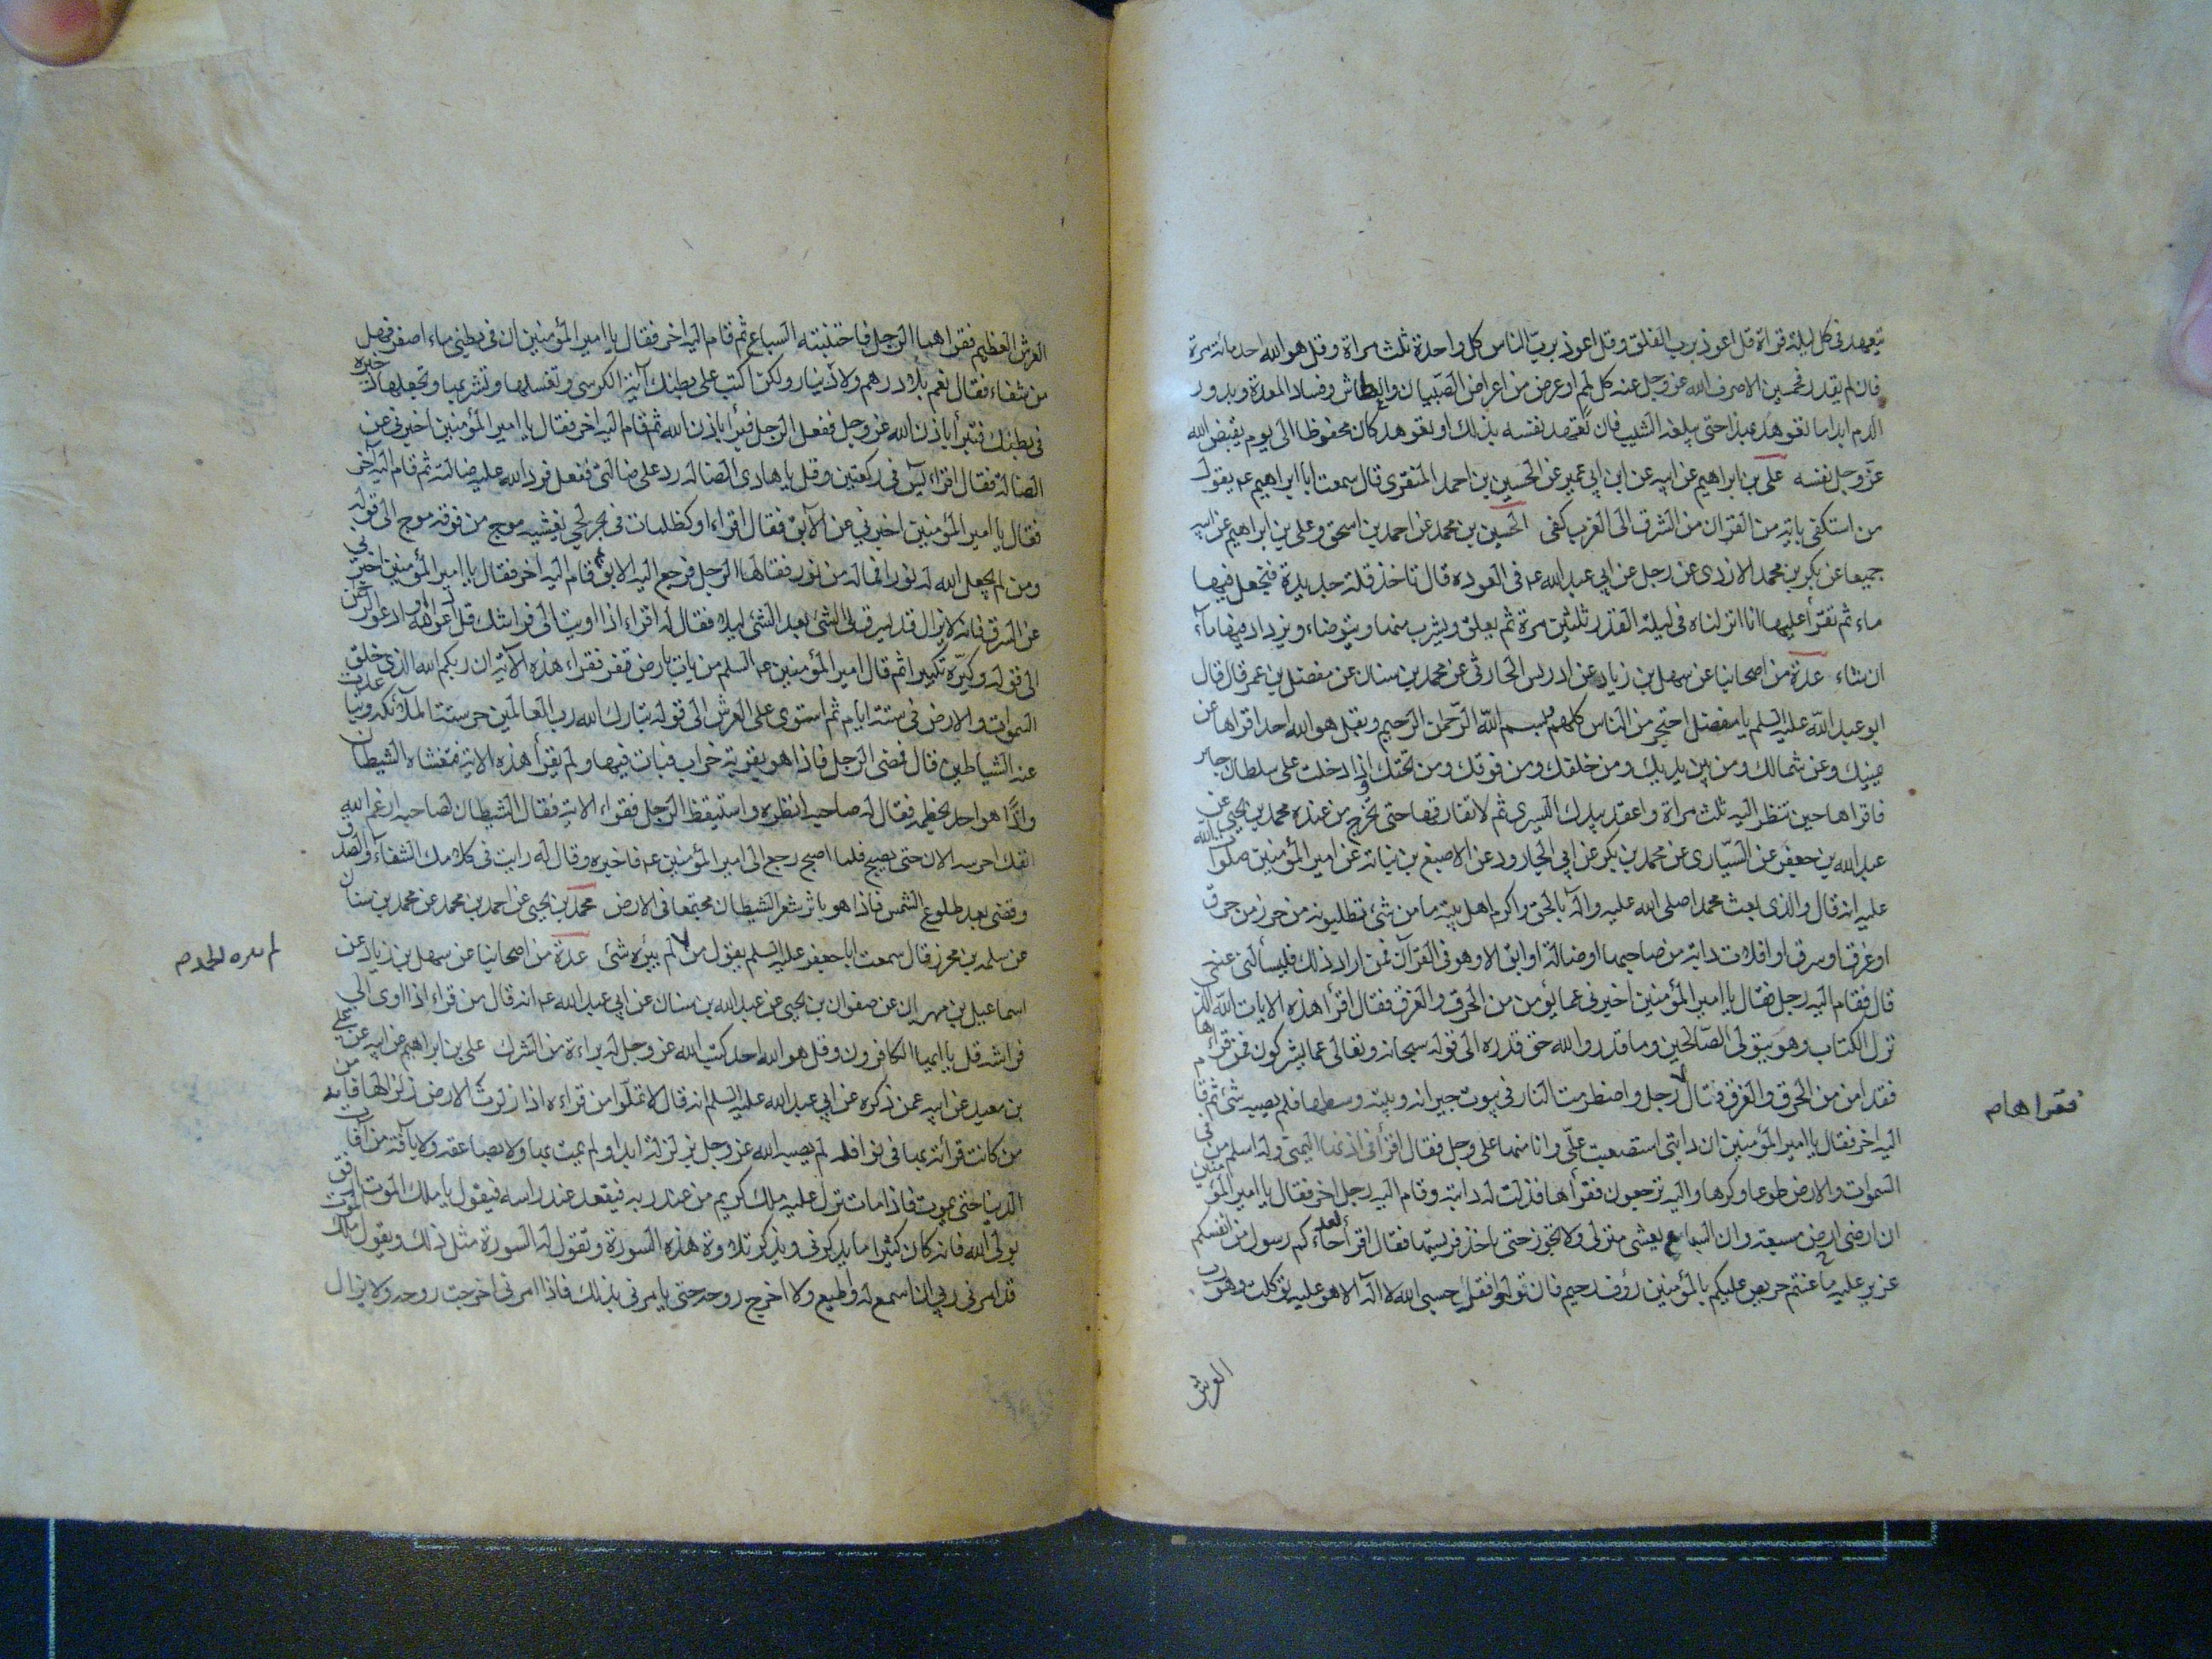 يتعهد في كل ليلة قراة قل اعوذ برب الفلق وقل اعوذ برب الناس كل واحدة ثلث مراة وقل هو الله احد مائة مرة
فان لم يقدر فخمسين الا صرف الله عز وجل عنه كل لمم او عرض من اعراض الصبيان والعطاش وفساد المعدة وبدور
الدم ابدا ما تعوهد بهذا حتى يبلغه الشيب فان تعهد نفسه بذلك او تعوهد كان محفوظا الى يوم يقبض الله
عز وجل نفسه علي بن ابراهيم عن ابيه عن ابن ابي عمير عن الحسين بن احمد المنقري قال سمعت ابا ابراهيم عه يقول
من استكفى باية من القران من الشرق الى الغرب كفى الحسين بن محمد عن احمد بن اسحق وعلي بن ابراهيم عن ابيه
جميعا عن بكر بن محمد الازدي عن رجل عن ابي عبد الله عه في العوذه قال تاخذ قلة جديدة فتجعل فيها
ماء ثم تقرأ عليها انا انزلناه في ليلة القدر ثلثين مرة ثم يعلق ويشرب منها ويتوضاء ويزداد فيها ماء
ان شاء عدة من اصحابنا عن سهل بن زياد عن ادريس الحارثي عن محمد بن سنان عن مفضل بن عمر قال قال
ابو عبد الله عليه السلم يا مفضل احتجز من الناس كلهم ببسم الله الرحمن الرحيم وبقل هو الله احد اقراها عن
يمينك وعن شمالك ومن بين يديك ومن خلفك ومن فوقك ومن تحتك واذا دخلت على سلطان جاير
فاقراها حين تنظر اليه ثلث مراة واعقد بيدك اليسرى ثم لا تفارقها حتى تخرج من عنده محمد بن يحيى عن
عبد الله بن جعفر عن السياري عن محمد بن بكر عن ابي الجارود عن الاصبغ بن نباتة عن امير المؤمنين صلوات الله
عليه انه قال والذي بعث محمدا صلى الله عليه واله بالحق واكرم اهل بيته ما من شئ تطلبونه من حرز من حرق
او غرق او سرق او افلات دابة من صاحبها او ضالة او ابق الا وهو في القرآن فمن اراد ذلك فليسألني عنه
قال فقام اليه رجل فقال يا امير المؤمنين اخبرني عما يؤمن من الحرق والغرق فقال اقرأ هذه الايات الله الذي
نزل الكتاب وهو يتولى الصالحين وما قدروا الله حق قدره الى قوله سبحانه وتعالى عما يشركون فمن قراها
فقد امن من الحرق والغرق قال رجل واضطرمت النار في بيوت جيرانه وبيته وسطها فلم يصبه شئ ثم قام
اليه اخر فقال يا امير المؤمنين ان دابتي استصعبت علي وانا منها على وجل فقال اقرأ في اذنها اليمنى وله اسلم من في
السموات والارض طوعا وكرها واليه ترجعون فقرأها فذلت له دابته وقام اليه رجل اخر فقال يا امير المؤمنين
ان ارضي ارض مسبعة وان السباع يغشى منزلي ولا تجوز حتى تاخذ فريستها فقال اقرأ لقد جاءكم رسول من انفسكم
عزيز عليه ما عنتم حريص عليكم بالمؤمنين رؤف رحيم فان تولوا فقل حسبي الله لا اله الا هو عليه توكلت وهو رب
العرش
فقراها
العرش العظيم فقراهما الرجل فاجتنبته السباع ثم قام اليه اخر فقال يا امير المؤمنين ان في بطني ماء اصفر فهل
من شفاء فقال نعم بلا درهم ولا دينار ولكن اكتب على بطنك آية الكرسي وتغسلها وتشربها وتجعلها ذخيرة
في بطنك فتبرأ باذن الله عز وجل ففعل الرجل فبرأ باذن الله ثم قام اليه اخر فقال يا امير المؤمنين اخبرني عن
الضالة فقال اقراء يس في ركعتين وقل يا هادي الضالة رد علي ضالتي ففعل فرد الله عليه ضالته ثم قام اليه آخر
فقال يا امير المؤمنين اخبرني عن الآبق فقال اقراء او كظلمات في بحر لجي يغشيه موج من فوقه موج الى قوله
ومن لم يجعل الله له نورا فما له من نور فقالها الرجل فرجع اليه الابق ثم قام اليه اخر فقال يا امير المؤمنين اخبرني
عن السرق فانه لا يزال قد يسرق لي الشئ بعد الشئ ليلا فقال له اقراء اذا اويت الى فراشك قل ادعوا الله او ادعوا الرحمن
الى قوله وكبره تكبيرا ثم قال امير المؤمنين عه السلم من بات بارض قفر فقراء هذه الآية ان ربكم الله الذي خلق
السموات والارض في ستة ايام ثم استوى على العرش الى قوله تبارك الله رب العالمين حرسته الملائكه وتباعدت
عنه الشياطين قال فمضى الرجل فاذا هو بقرية خراب فبات فيها ولم يقرأ هذه الاية فتغشاه الشيطان
واذا هو اخذ بخطمه فقال له صاحبه انظره واستيقظ الرجل فقراء الاية فقال الشيطان لصاحبه ارغم الله
انفك احرسه الان حتى يصبح فلما اصبح رجع الى امير المؤمنين عه فاخبره وقال له رايت في كلامك الشفاء والصدق
ومضى بعد طلوع الشمس فاذا هو باثر شعر الشيطان مجتمعا في الارض محمد بن يحيى عن احمد بن محمد عن محمد بن سنان
عن سلمة بن محرز قال سمعت ابا جعفر عليه السلم يقول من لم يبرئه شئ عدة من اصحابنا عن سهل بن زياد عن
اسماعيل بن مهران عن صفوان بن يحيى عن عبد الله بن سنان عن ابي عبد الله عه انه قال من قراء اذا اوى الى
فراشه قل يا ايها الكافرون وقل هو الله احد كتب الله عز وجل له براءة من الشرك علي بن ابراهيم عن ابيه عن علي
بن معبد عن ابيه عمن ذكره عن ابي عبد الله عليه السلم انه قال لا تملوا من قراءه اذا زلزلت الارض زلزالها فانه من
كانت قرأته بها في نوافله لم يصبه الله عز وجل بزلزلة ابدا ولم يمت بها ولا بصاعقه ولا بآفة من آفات
الدنيا حتى يموت فاذا مات نزل عليه ملك كريم من عند ربه فيقعد عند راسه فيقول يا ملك الموت ارفق
بولي الله فانه كان كثيرا ما يذكرني ويذكر تلاوة هذه السورة وتقول له السورة مثل ذلك ويقول ملك الموت
قد امرني ربي ان اسمع له واطيع ولا اخرج روحه حتى يامرني بذلك فاذا امرني اخرجت روحه ولا يزال